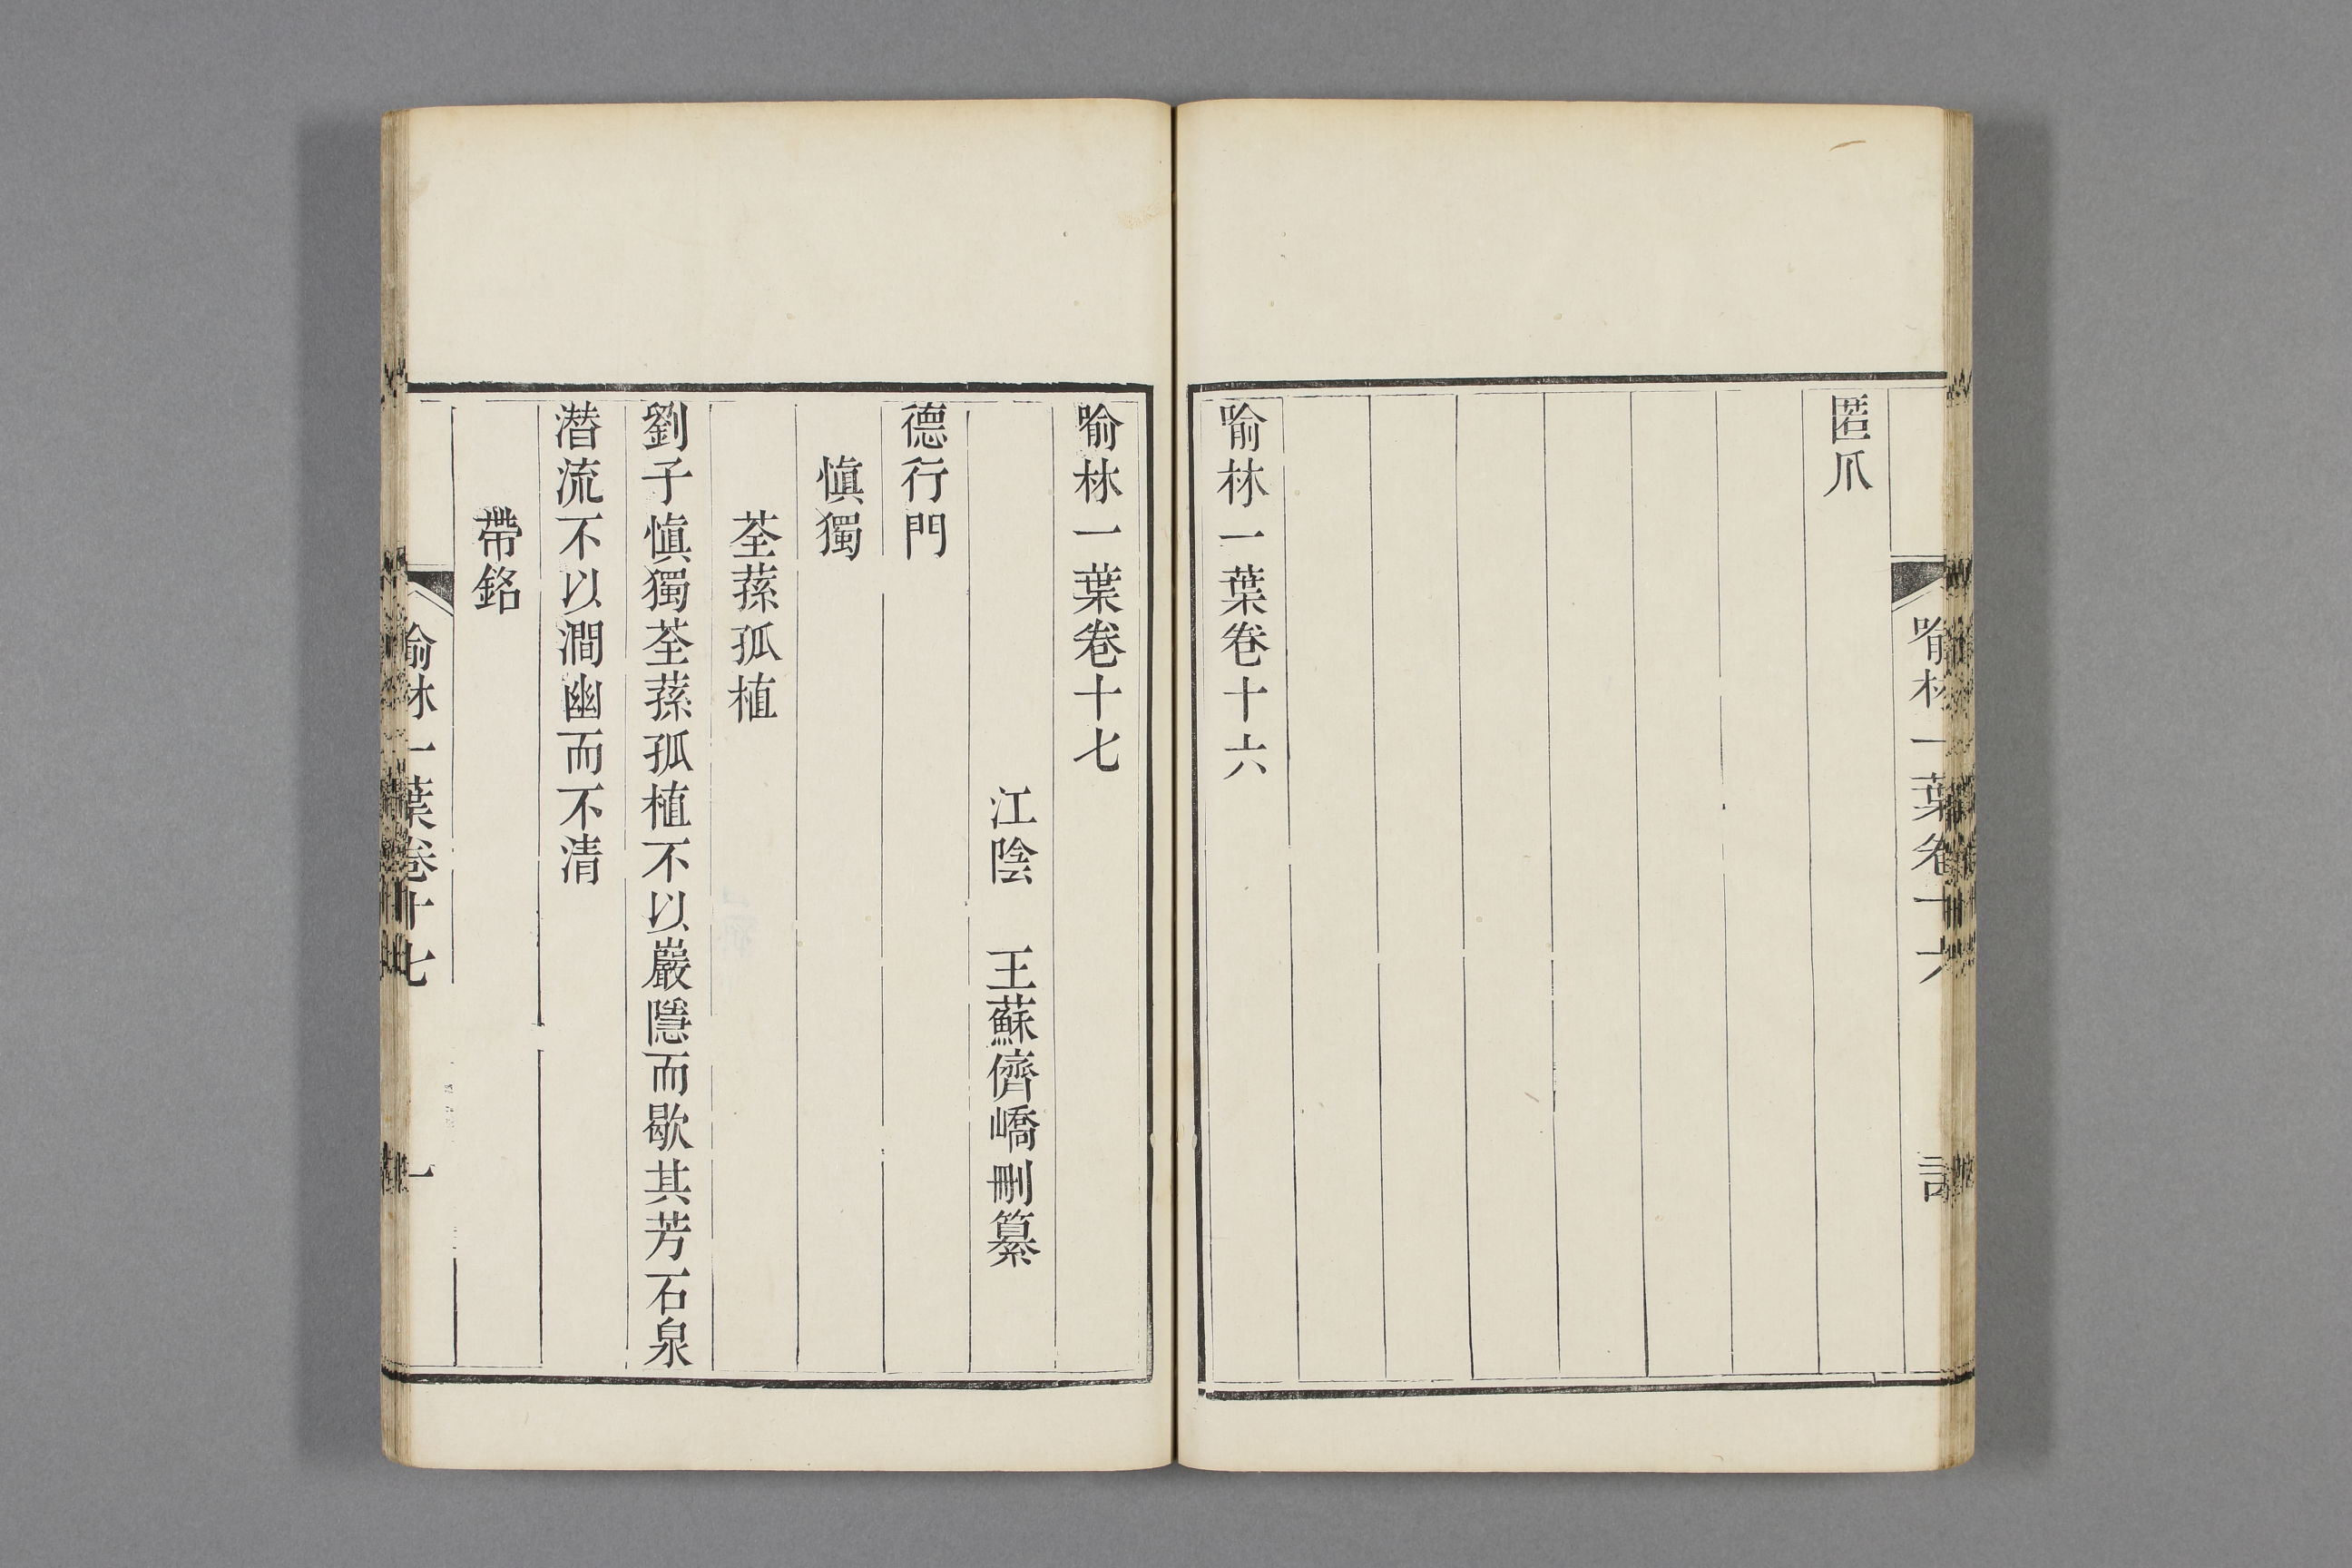 匿爪
喻林一葉卷十六
喻林一葉卷十六
喻林一葉卷十七
江陰 王蘇儕嶠刪纂
德行門
慎獨
荃蓀孤植
劉子慎獨荃蓀孤植不以巖隱而歇其芳石泉
潛流不以澗幽而不清
帶銘
喻林一葉卷十七 一